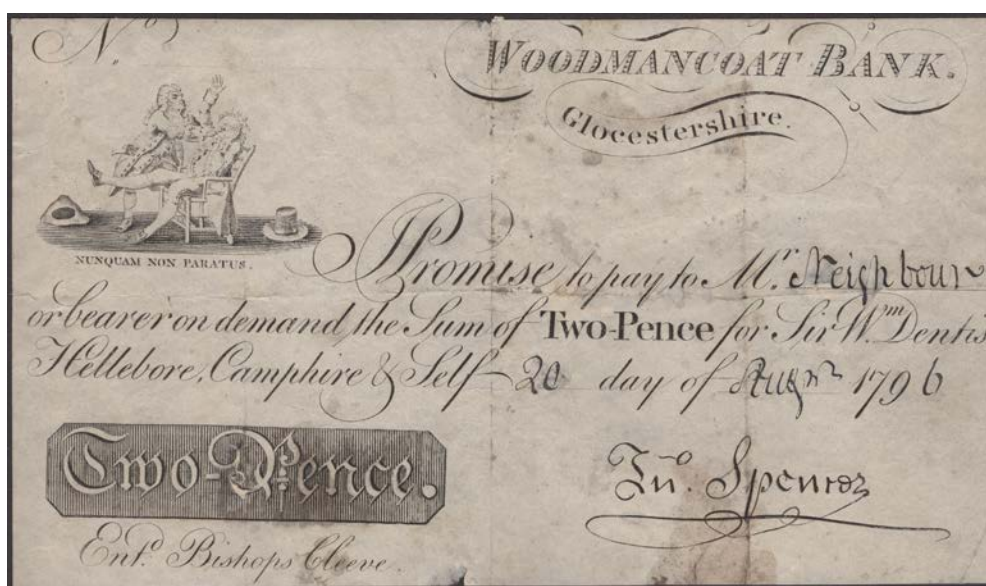 No
WOODMANCOAT BANK.
Glocestershire.
NUNQUAM NON PARATUS.
I Promise to pay to Mr. Neighbour
or bearer on demand the Sum of Two-Pence for Sir Wm Dentis
Hellebore, Camphire & Self 20 day of 1796
Two-Pence.
Jno. Spencer
Entd. Bishops Cleeve.